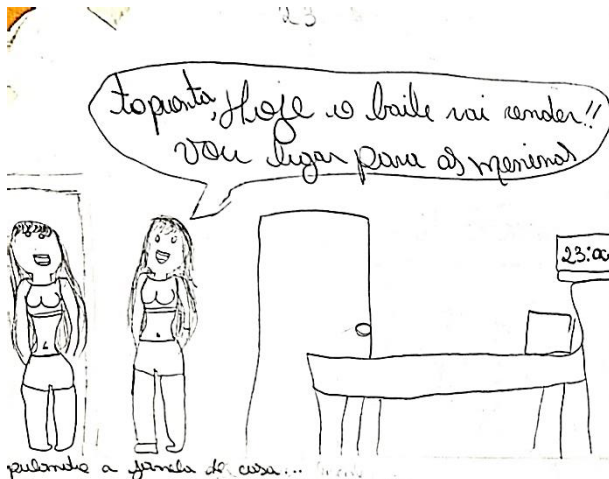 23
to pronta, Hoje o baile vai render!!
vou ligar para as meninas
23:00
pulando a janela de casa...